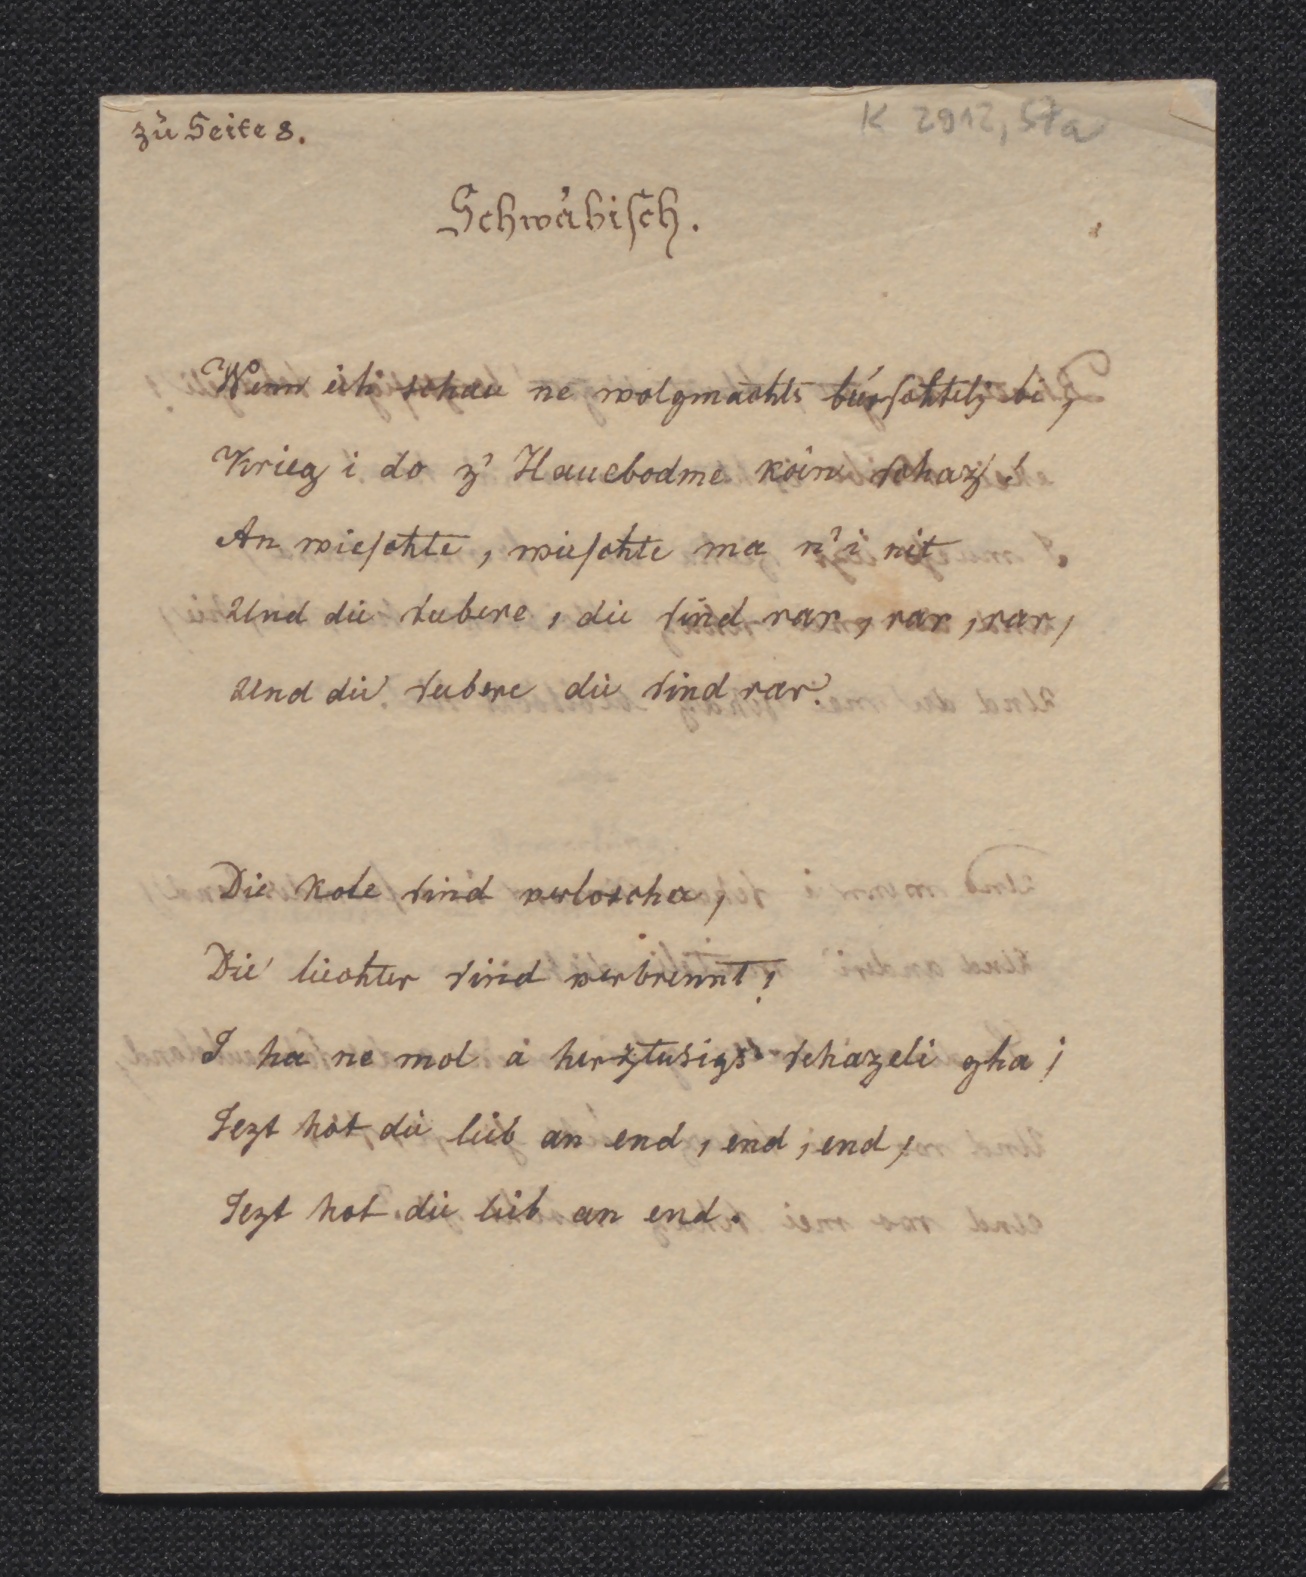 zu Seite 8.
K 2912, 57a
Schwäbisch.
Wenn ich schau ne wolgmachts bürschteli bi,
Krieg i do z' Hauebodme köin schaz!
An wieschte, wieschte ma n'i nit
Und die subere, die sind rar, rar, rar,
Und die subere die sind rar.
Die kole sind verloscha,
Die liechter sind verbrennt!
I ha ne mol ä herztusigs schazeli gha;
Jezt hot die lieb an end, end, end,
Jezt hot die lieb an end.